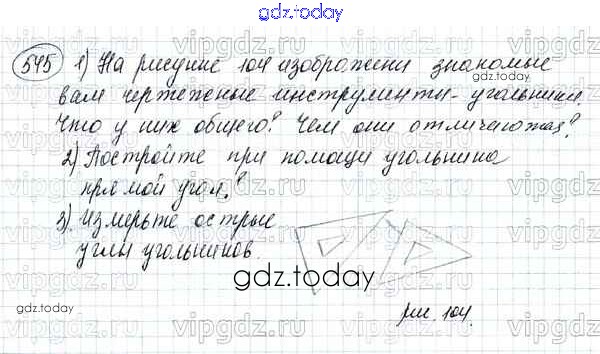 gdz.today
545 1) На рисунке 104 изображены знакомые
вам чертежные инструменты - угольники.
Что у них общего? Чем они отличаются?
2) Постройте при помощи угольника
прямой угол.
3) Измерьте острые
углы угольников.
gdz.today
рис. 104.